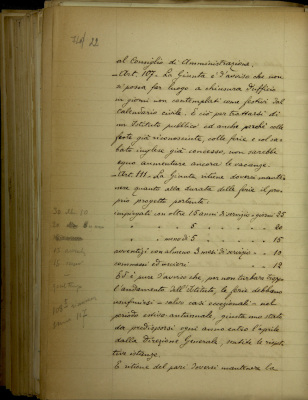 22
al Consiglio di Amministrazione.
Art. 107. La Giunta è d'avviso che non
si possa far luogo a chiusura d'ufficio
in giorni non contemplati come festivi dal
Calendario civile. E ciò per trattarsi di
un Istituto pubblico; ed anche perchè colle
feste già riconosciute, colle ferie e col sa-
bato inglese già concesso, non sarebbe
equo aumentare ancora le vacanze.
Art. 111. La Giunta ritiene doversi mante-
nere quanto alla durata delle ferie il pro-
prio progetto portante:
impiegati con oltre 15 anni di servizio - giorni 25
" " 5 " " 20
" " meno di 5 " " 15
avventizi con almeno 3 mesi di servizio 10
commessi ed uscieri 12
Ed è pure d'avviso che, per non turbare troppo
l'andamento dell'Istituto, le ferie debbano
usufruirsi - salvo casi eccezionali - nel
periodo estivo autunnale, giusta uno stato
da predisporsi ogni anno entro l'aprile
dalla Direzione Generale, sentite le rispet-
tive istanze.
E ritiene del pari doversi mantenere la